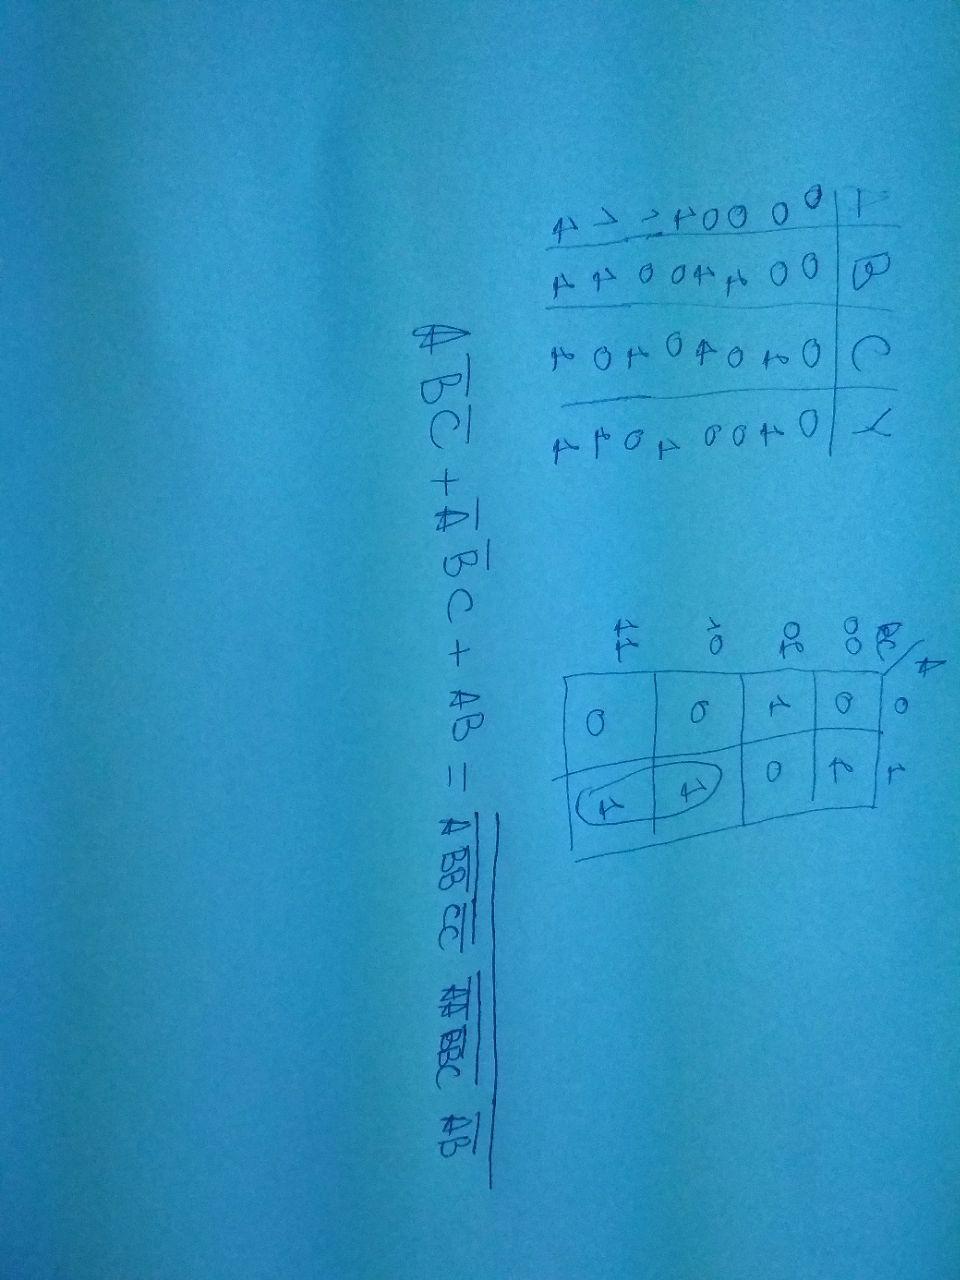 A B C Y
0 0 0 0
0 0 1 1
0 1 0 0
0 1 1 0
1 0 0 1
1 0 1 0
1 1 0 1
1 1 1 1
BC / A 0 1
00 0 1
01 1 0
10 0 1
11 0 1
A B̅ C̅ + A̅ B̅ C + AB = A BB CC AA BB C AB